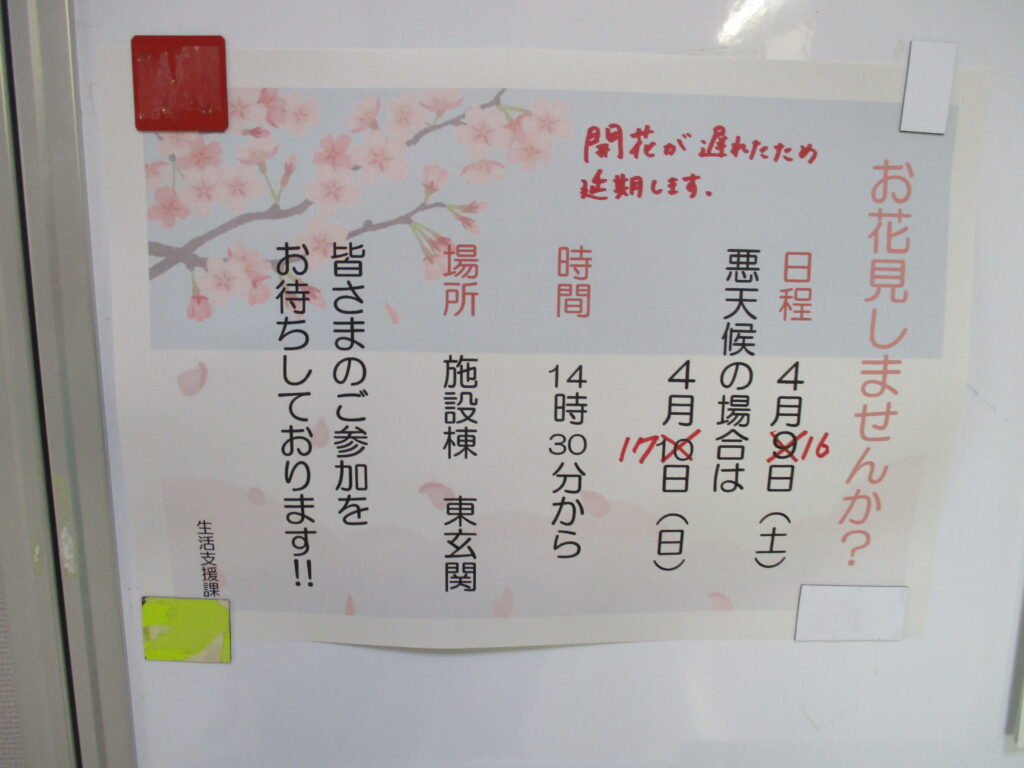 お花見しませんか?
開花が遅れたため
延期します.
日程 4月9日(土)
16
悪天候の場合は
4月10日(日)
17
時間 14時30分から
場所 施設棟 東玄関
皆さまのご参加を
お待ちしております!!
生活支援課